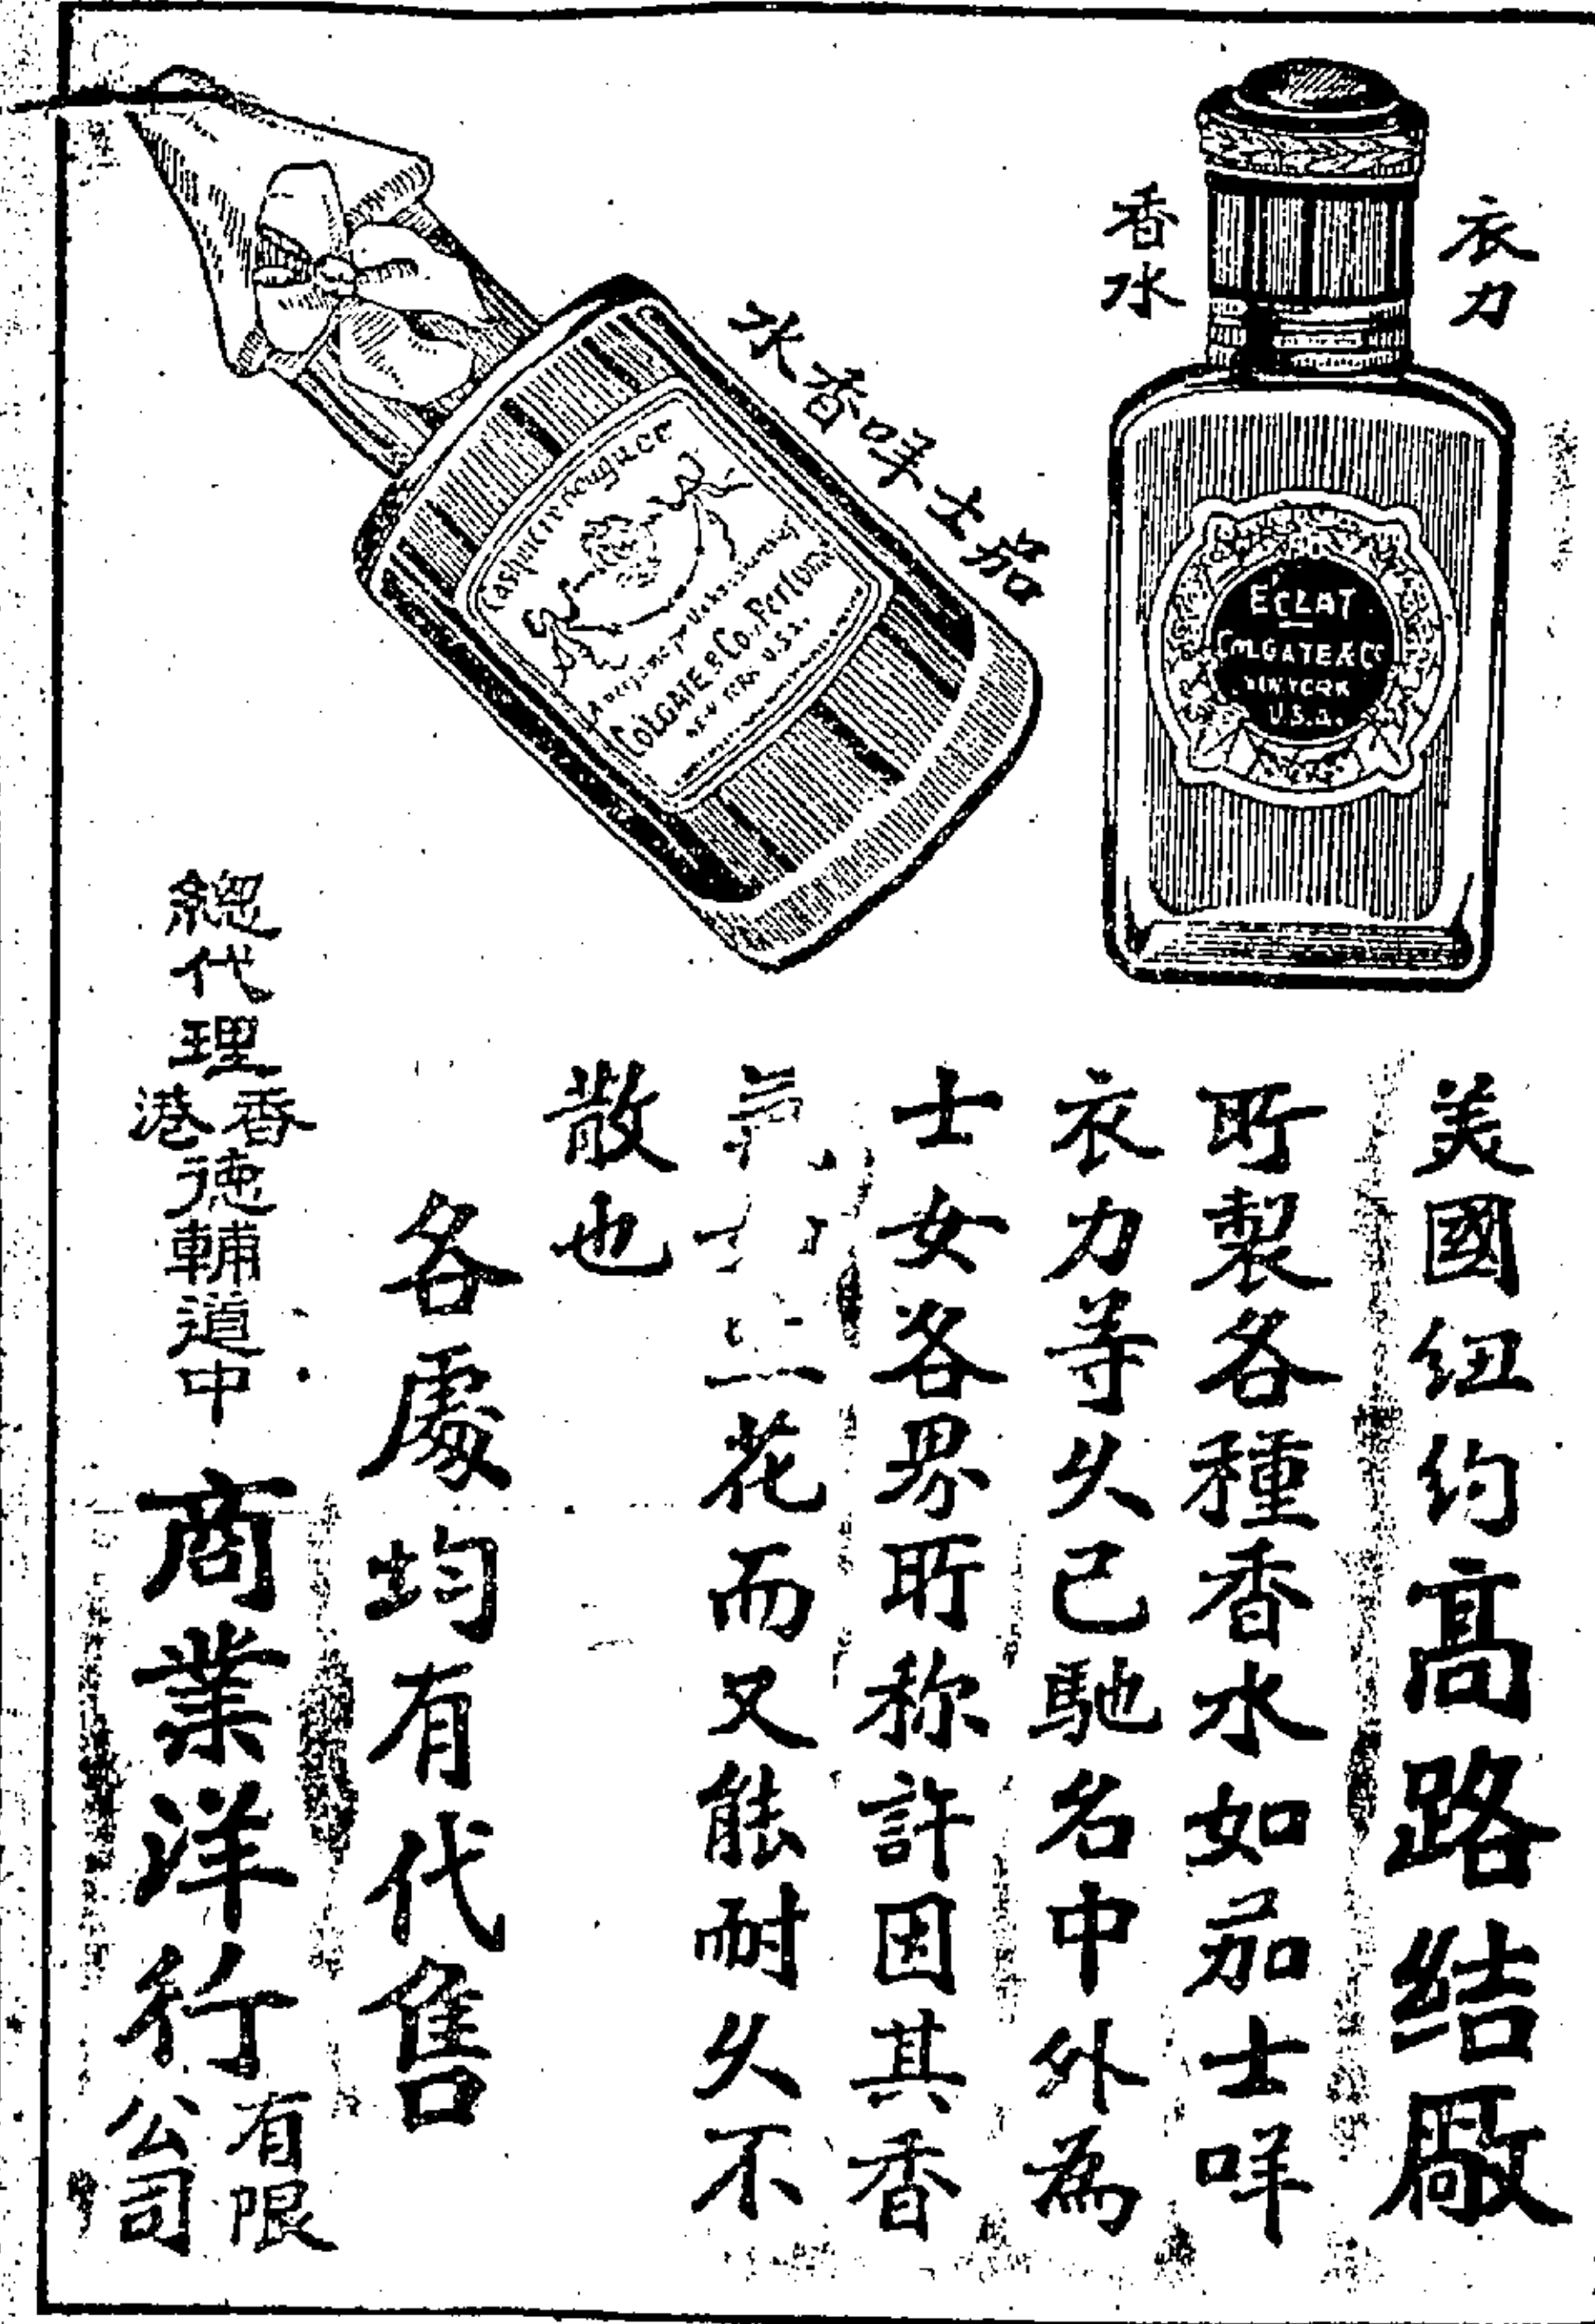 衣力
香水
ÉCLAT
COLGATE & Co
NEW YORK
U.S.A.
茄士咩香水
Cashmere Bouquet
COLGATE & Co. Perfume
NEW YORK U.S.A.
美國纽约高路结廠
所製各種香水如茄士咩
衣力等久已馳名中外為
士女各界所称許因其香
花而又能耐久不
散也
各處均有代售
總代理香港德輔道中商業洋行有限公司